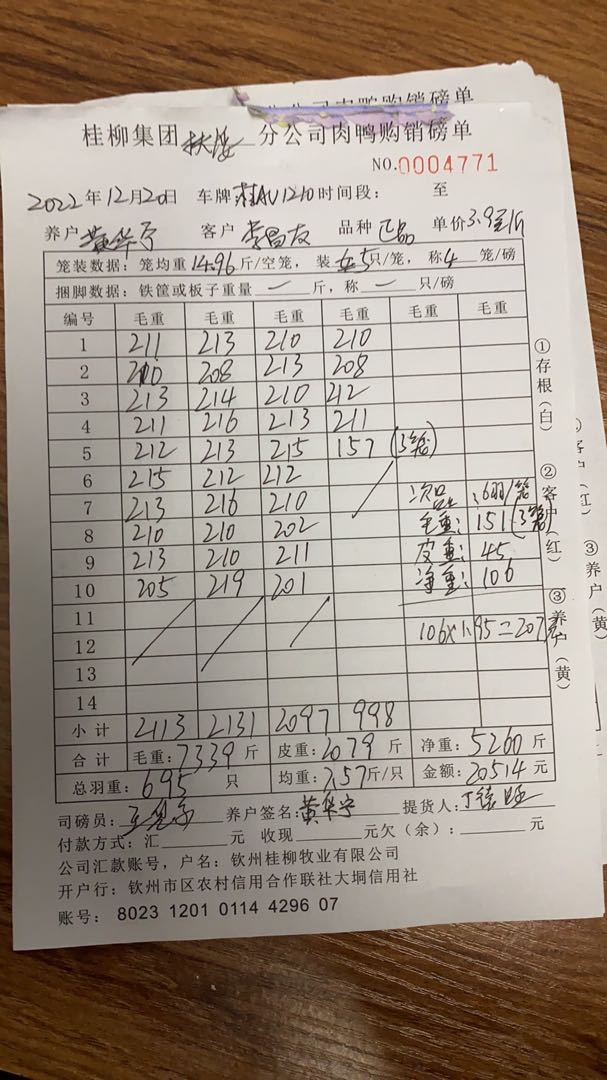 公司肉鸭购销磅单
桂柳集团 扶绥 分公司肉鸭购销磅单
NO.0004771
2022年12月20日 车牌 桂AU1210 时间段: 至
养户 黄华宁 客户 李昌友 品种 正品 单价3.9元/斤
笼装数据:笼均重14.96斤/空笼,装5只/笼,称4笼/磅
捆脚数据:铁筐或板子重量 一 斤,称 一 只/磅
编号 毛重 毛重 毛重 毛重 毛重 毛重
1 211 213 210 210
2 210 208 213 208
3 213 214 210 212
4 211 216 213 211
5 212 213 215 157 (3笼)
6 215 212 212
7 213 216 210 次品:
8 210 210 202 毛重:151(3笼)
9 213 210 211 皮重:45
10 205 219 201 净重:106
11
12 106×1.95=207元
13
14
小计 2113 2131 2097 998
合计 毛重:7339斤 皮重:2079斤 净重:5260斤
总羽重:695只 均重:7.57斤/只 金额:20514元
司磅员: 养户签名:黄华宁 提货人:
付款方式:汇 元 收现 元欠(余): 元
公司汇款账号,户名:钦州桂柳牧业有限公司
开户行:钦州市区农村信用合作联社大垌信用社
账号: 8023 1201 0114 4296 07
①存根(白)
②客户(红)
③养户(黄)
客户(红)
③养户(黄)